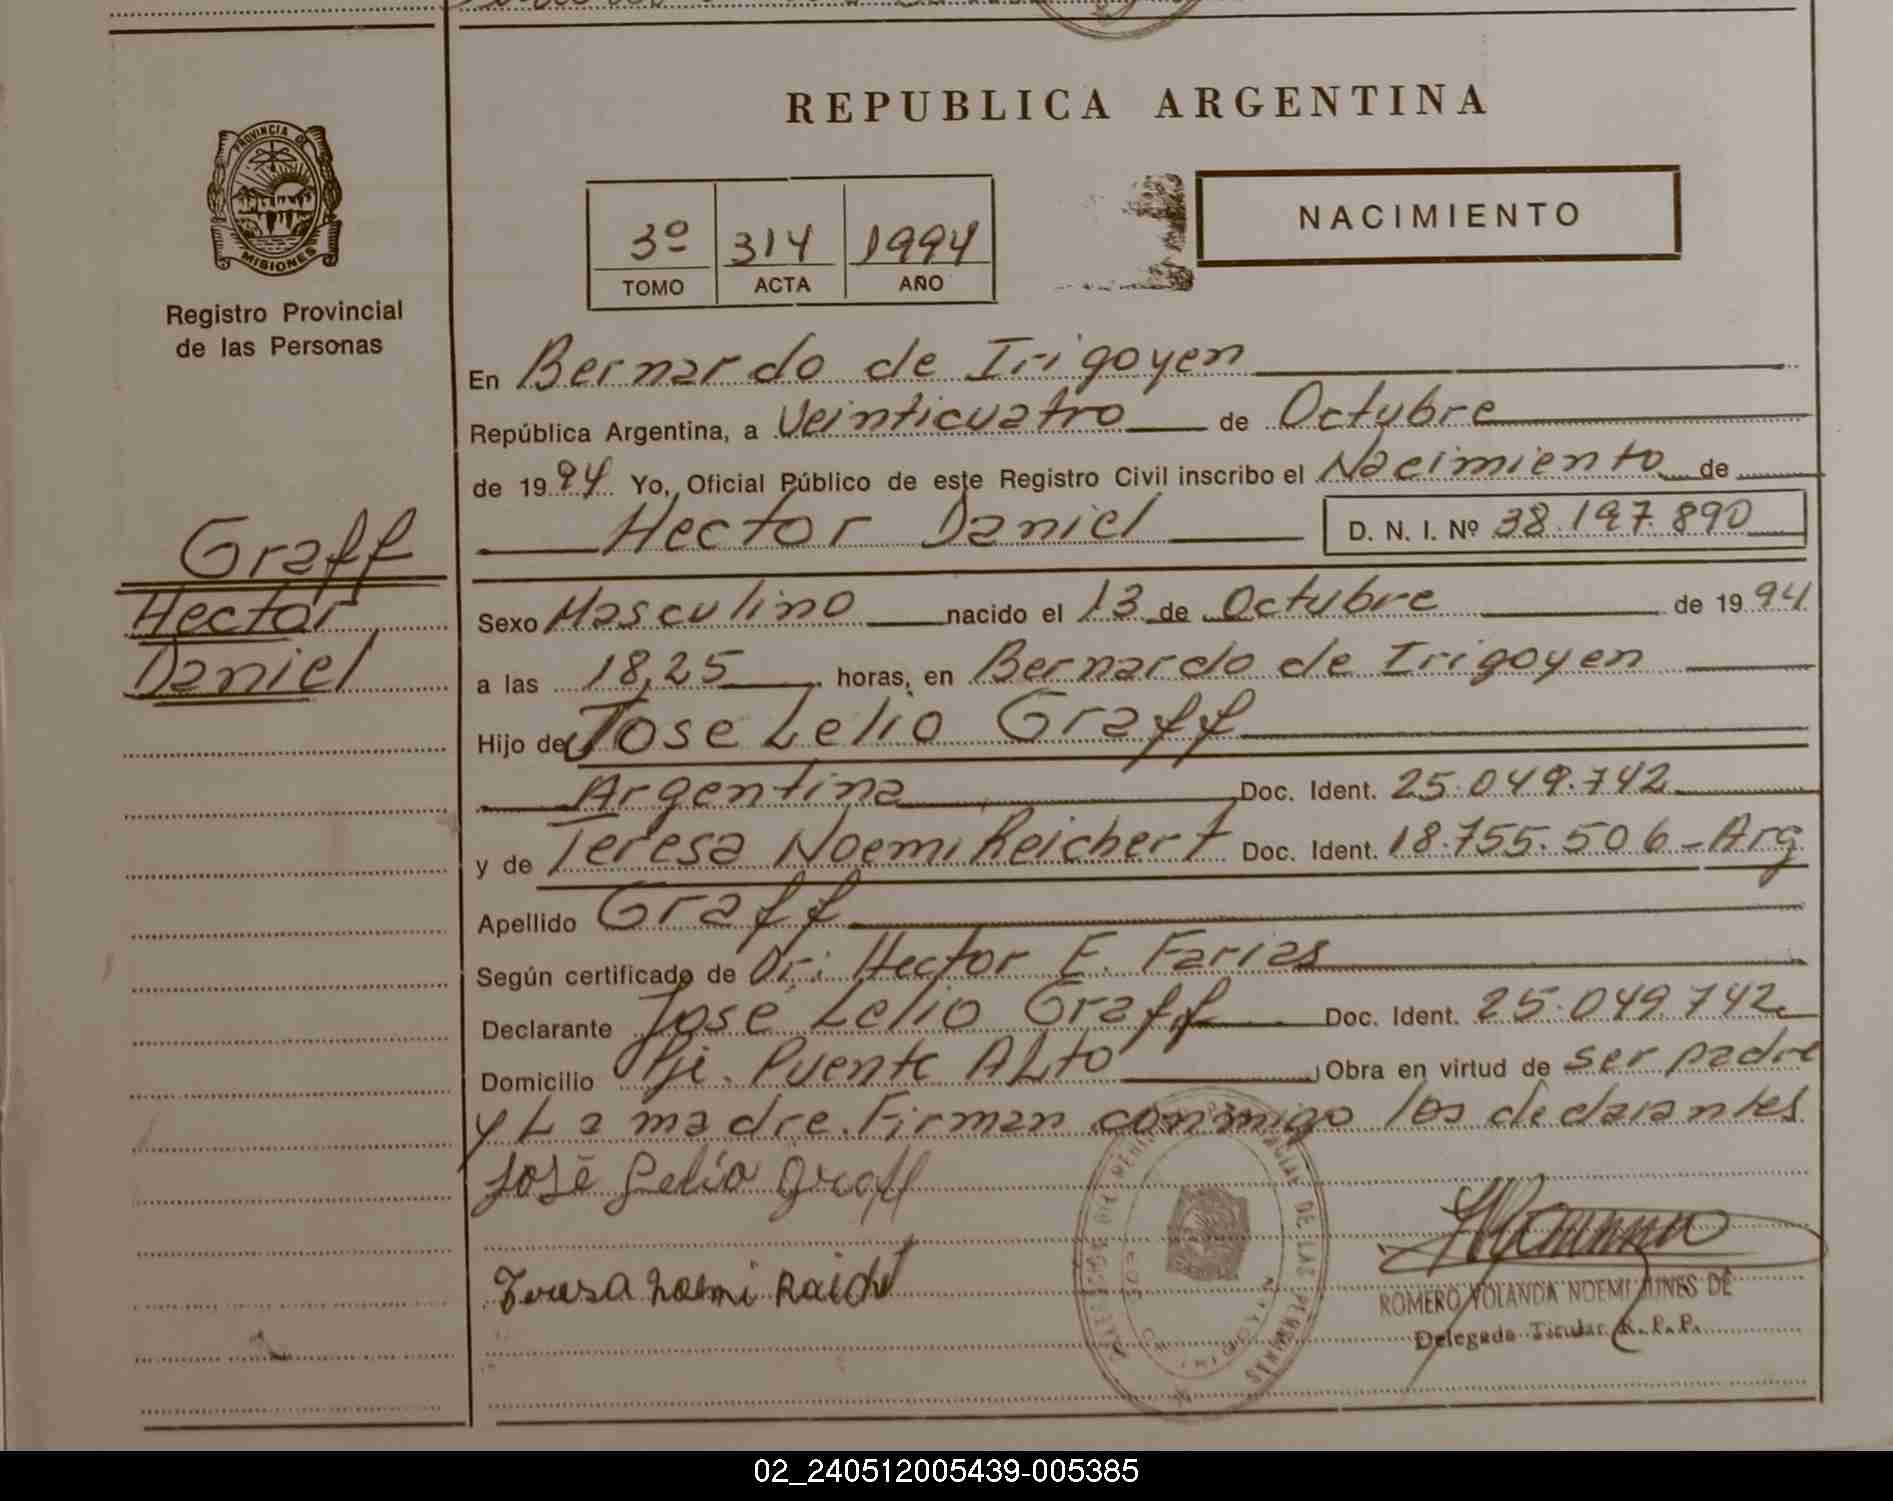 REPUBLICA ARGENTINA
PROVINCIA DE
MISIONES
Registro Provincial
de las Personas
3º 314 1994
TOMO ACTA AÑO
NACIMIENTO
En Bernardo de Irigoyen
República Argentina, a Veinticuatro de Octubre
de 1994 Yo, Oficial Público de este Registro Civil inscribo el Nacimiento de
Hector Daniel D. N. I. Nº 38.197.890
Graff
Hector
Daniel
Sexo Masculino nacido el 13 de Octubre de 1994
a las 18,25 horas, en Bernardo de Irigoyen
Hijo de Jose Lelio Graff
Argentina Doc. Ident. 25.049.742
y de Teresa Noemi Reichert Doc. Ident. 18.755.506 - Arg
Apellido Graff
Según certificado de Dr: Hector E. Farias
Declarante José Lelio Graff Doc. Ident. 25.049.742
Domicilio Pje. Puente Alto Obra en virtud de ser padre
y La madre. Firman conmigo los declarantes
José Lelio Graff
Teresa Noemi
ROMERO YOLANDA NOEMI DE
Delegada Titular R. P. P.
DE LAS PERSONAS
02_240512005439-005385